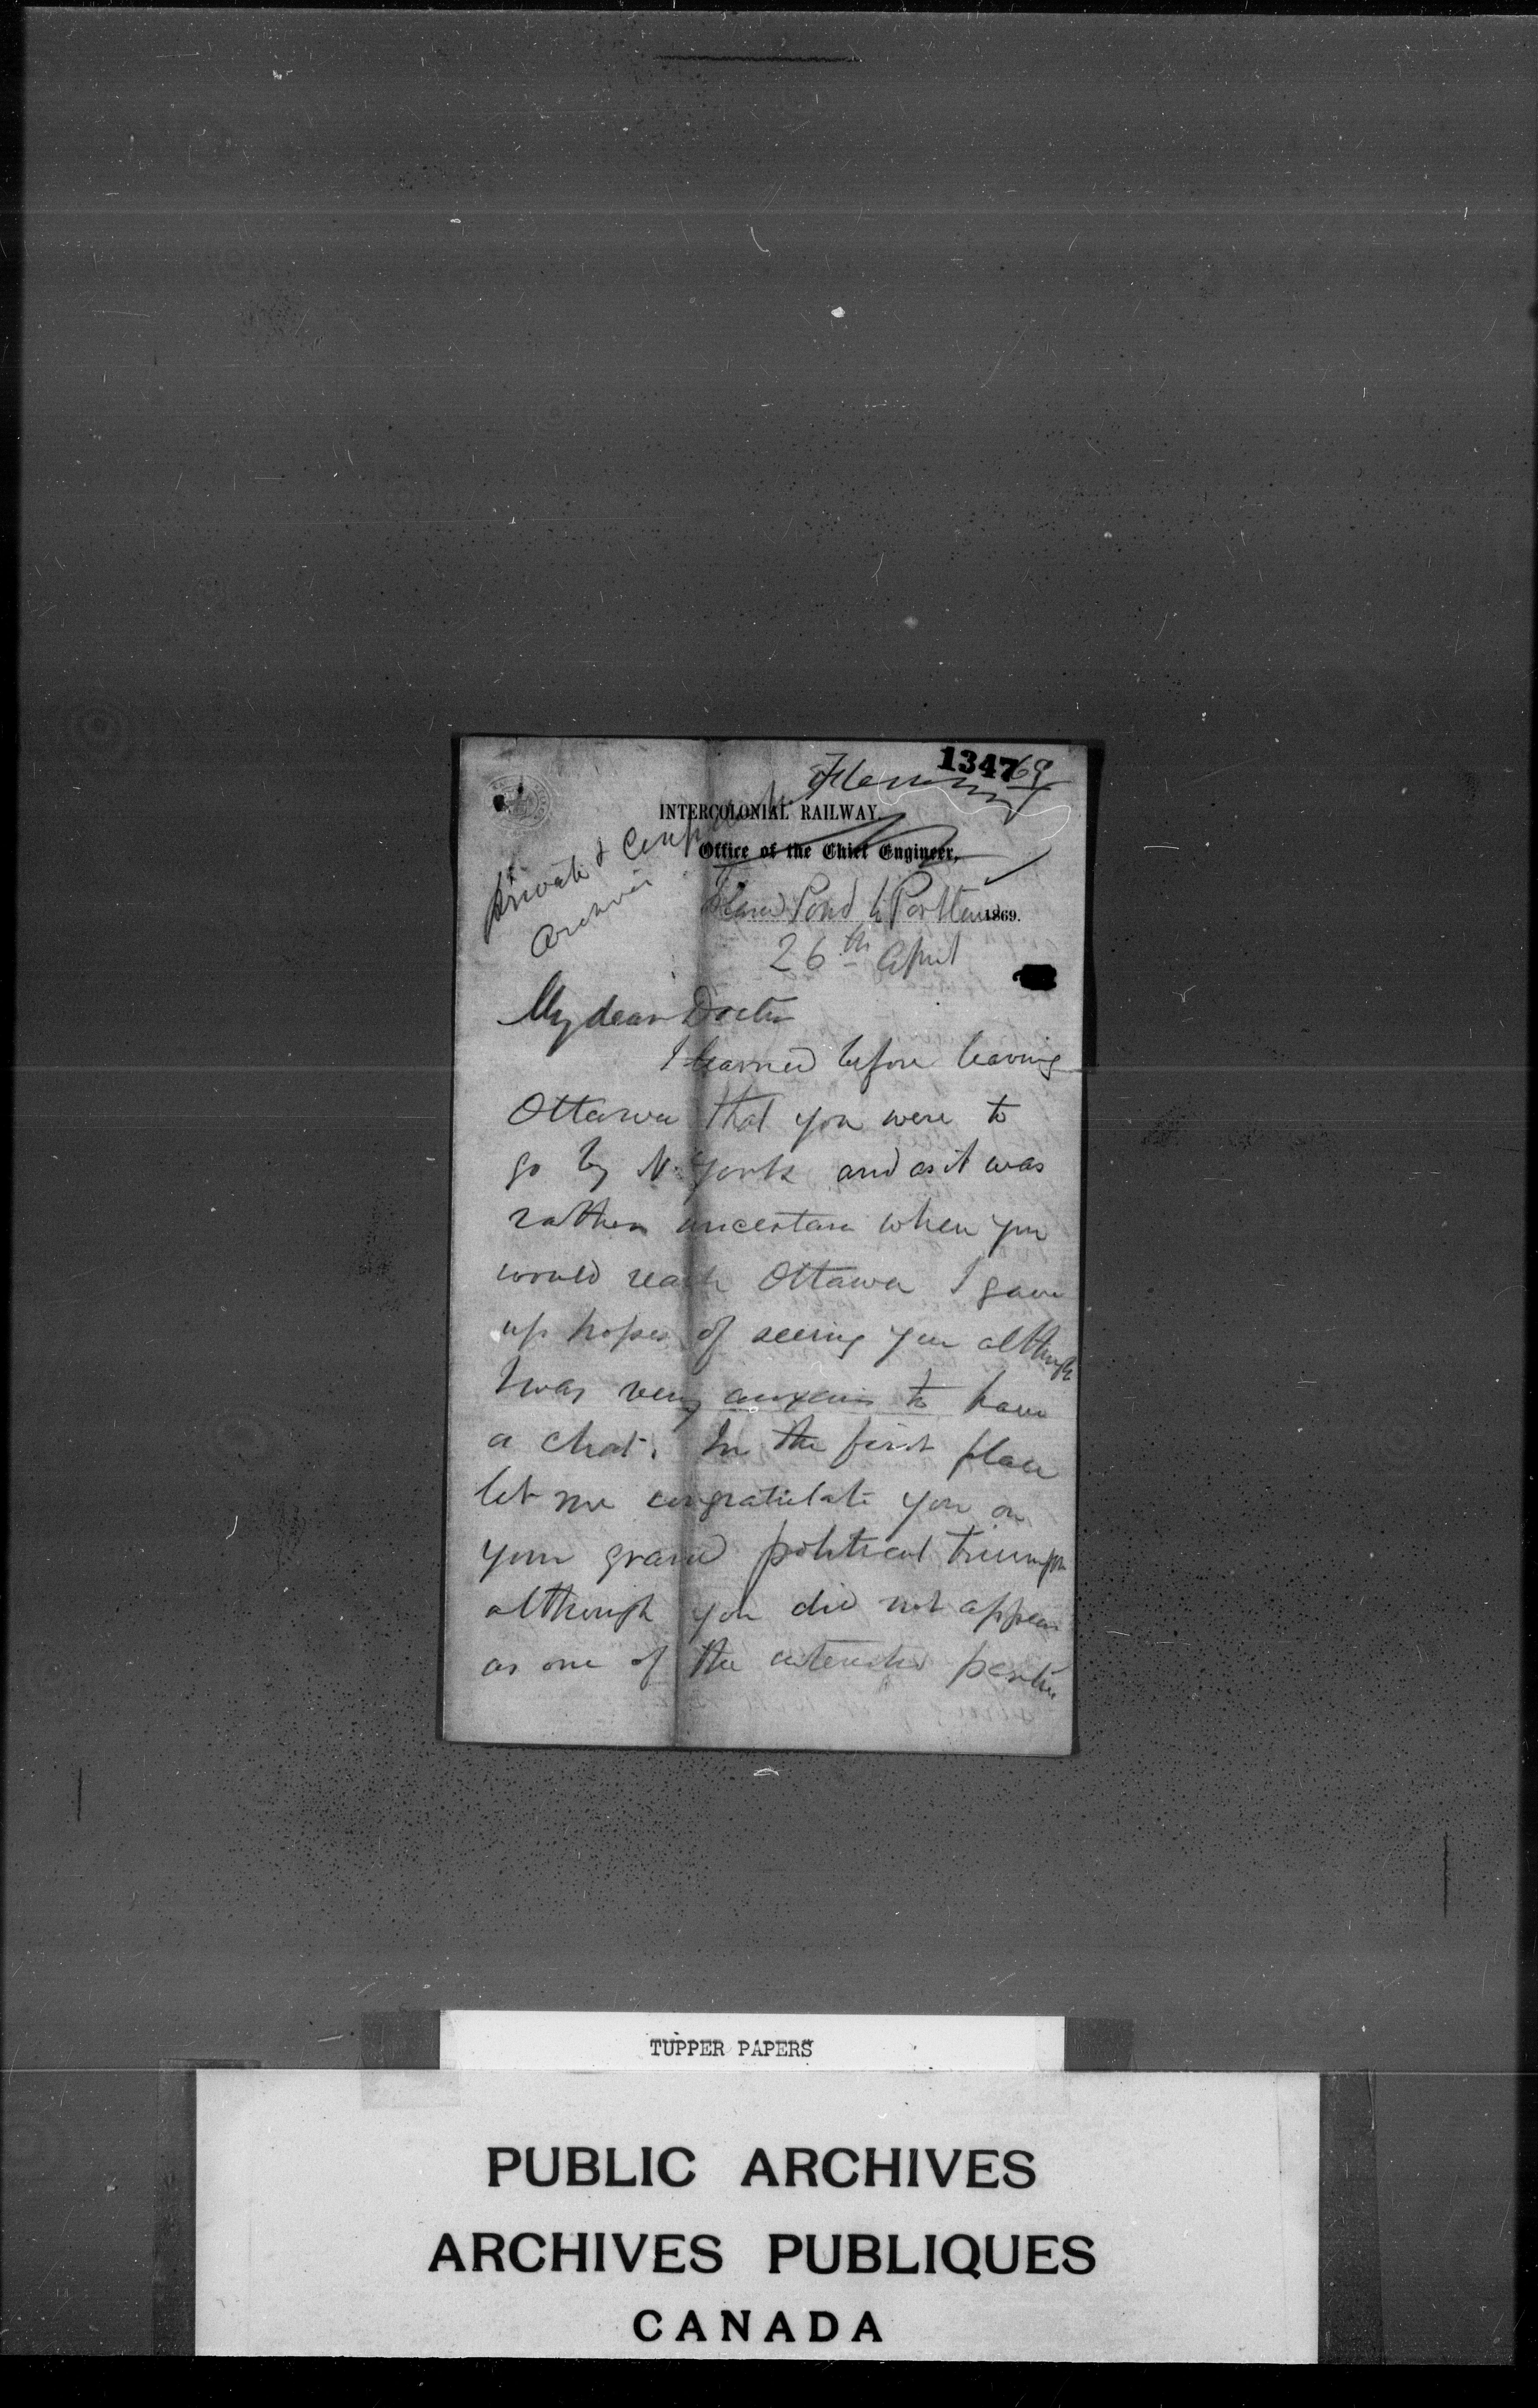 1347
69
Fleming
INTERCOLONIAL RAILWAY.
Office of the Chief Engineer,
Private &
Island Pond to Portland 1869.
26th April
My dear Doctor
I learned before leaving
Ottawa that you were to
go by N. York and as it was
rather uncertain when you
would reach Ottawa I gave
up hopes of seeing you although
I was very anxious to have
a chat. In the first place
let me congratulate you on
your grand political triumph
although you did not appear
as one of the parties
TUPPER PAPERS
PUBLIC ARCHIVES
ARCHIVES PUBLIQUES
CANADA